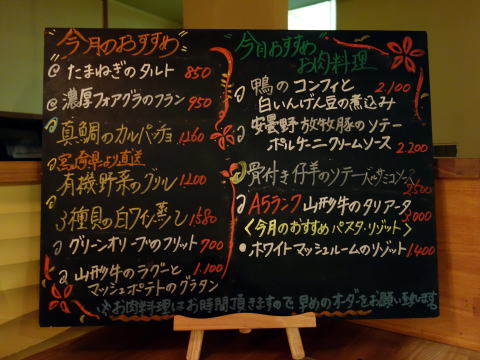 今月のおすすめ
@ たまねぎのタルト 850
@ 濃厚フォアグラのフラン 950
真鯛のカルパッチョ 1,160
宮崎県より直送
有機野菜のグリル 1,200
3種貝の白ワイン蒸し 1,580
グリーンオリーブのフリット 700
山形牛のラグーと 1,100
マッシュポテトのグラタン
今月おすすめ
お肉料理
鴨のコンフィと 2,100
白いんげん豆の煮込み
安曇野放牧豚のソテー
ポルチーニクリームソース 2,200
骨付き仔羊のソテーバルサミコソース
2,500
A5ランク 山形牛のタリアータ
3,000
<今月のおすすめパスタ・リゾット>
• ホワイトマッシュルームのリゾット 1,400
※お肉料理はお時間頂きますので早めのオーダーをお願い致します